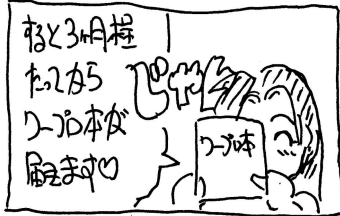 すると3ヶ月程
たってから
ワープロ本が
届きます♡
じゃん
ワープロ本